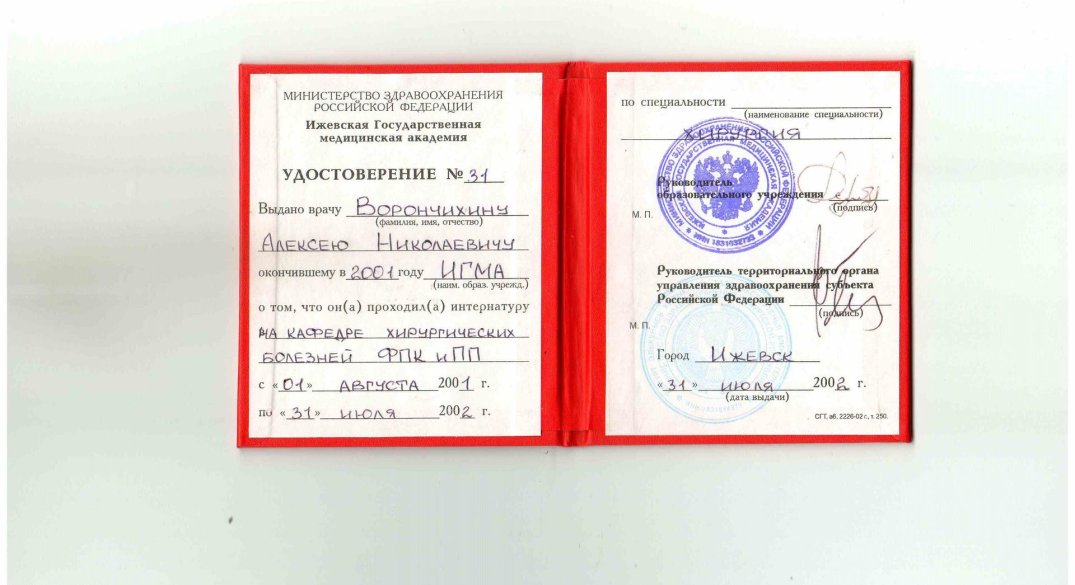 МИНИСТЕРСТВО ЗДРАВООХРАНЕНИЯ
РОССИЙСКОЙ ФЕДЕРАЦИИ
Ижевская Государственная
медицинская академия
УДОСТОВЕРЕНИЕ № 31
Выдано врачу Ворончихину
(фамилия, имя, отчество)
Алексею Николаевичу
окончившему в 2001 году ИГМА
(наим. образ. учрежд.)
о том, что он(а) проходил(а) интернатуру
на кафедре хирургических
болезней ФПК и ПП
с «01» августа 2001 г.
по «31» июля 2002 г.
по специальности
(наименование специальности)
хирургия
Руководитель
образовательного учреждения
(подпись)
М. П.
Руководитель территориального органа
управления здравоохранения субъекта
Российской Федерации
(подпись)
М. П.
Город Ижевск
«31» июля 2002 г.
(дата выдачи)
СГТ, зб. 2226-02 г., т. 250.
ИНН 1831032733